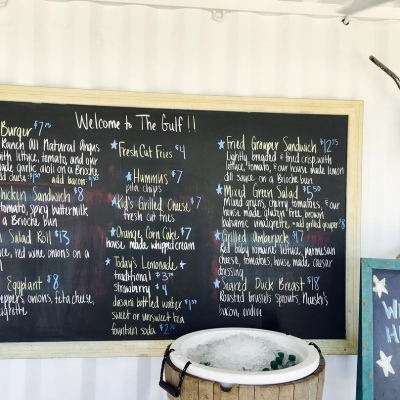 Welcome to The Gulf!!
Burger $7.75
Ranch All Natural Angus
with lettuce, tomato, and our
made garlic aioli on a Brioche
add bacon
Chicken Sandwich $8
tomato, spicy buttermilk
a Brioche bun
Salad Roll $13
red wine onions on a
Eggplant $8
peppers, onions, feta cheese,
Fresh Cut Fries $4
Hummus $7
pita chips
Kid's Grilled Cheese $7
fresh cut fries
Orange Corn Cake $7
house made whipped cream
Today's Lemonade
traditional $3
strawberry $4
dasani bottled water
sweet or unsweet tea
fountain soda
Fried Grouper Sandwich $12.75
Lightly breaded & fried crisp, with
lettuce, tomato, & our house made lemon
dill sauce, on a Brioche bun
Mixed Green Salad $5.50
Mixed greens, cherry tomatoes, & our
house made gluten free, brown
balsamic vinaigrette add grilled grouper $8
Grilled Amberjack $17
Red baby romaine lettuce, parmesan
cheese, tomatoes, house made caesar
dressing
Seared Duck Breast $18
Roasted brussels sprouts, Nueske's
bacon, endive